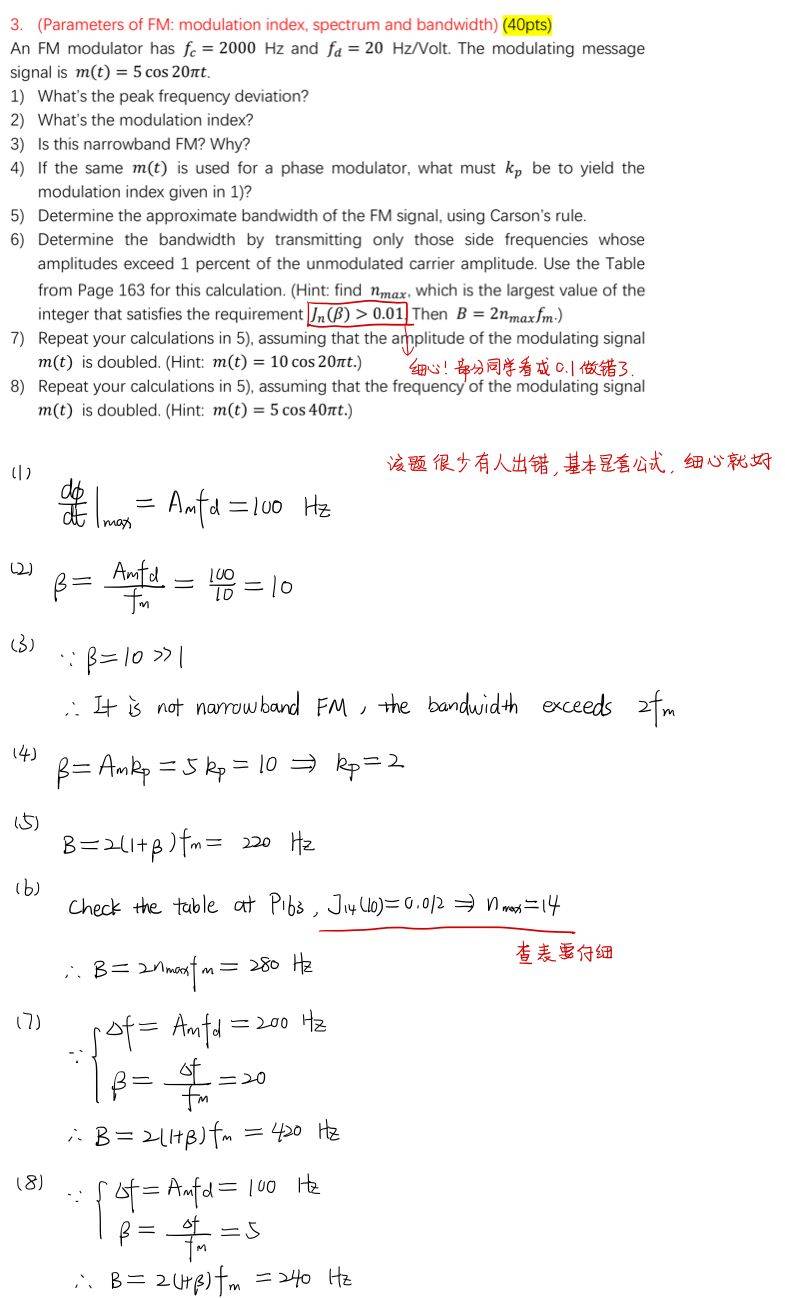 3. (Parameters of FM: modulation index, spectrum and bandwidth) (40pts)
An FM modulator has f_c = 2000 Hz and f_d = 20 Hz/Volt. The modulating message
signal is m(t) = 5 cos 20πt.
1) What's the peak frequency deviation?
2) What's the modulation index?
3) Is this narrowband FM? Why?
4) If the same m(t) is used for a phase modulator, what must k_p be to yield the
modulation index given in 1)?
5) Determine the approximate bandwidth of the FM signal, using Carson's rule.
6) Determine the bandwidth by transmitting only those side frequencies whose
amplitudes exceed 1 percent of the unmodulated carrier amplitude. Use the Table
from Page 163 for this calculation. (Hint: find n_max, which is the largest value of the
integer that satisfies the requirement J_n(β) > 0.01. Then B = 2n_max f_m.)
7) Repeat your calculations in 5), assuming that the amplitude of the modulating signal
m(t) is doubled. (Hint: m(t) = 10 cos 20πt.)
细心! 部分同学看成0.1做错了.
8) Repeat your calculations in 5), assuming that the frequency of the modulating signal
m(t) is doubled. (Hint: m(t) = 5 cos 40πt.)
该题很少有人出错, 基本是套公式, 细心就好
(1)
dφ/dt |_max = A_m f_d = 100 Hz
(2) β = A_m f_d / f_m = 100/10 = 10
(3) ∵ β = 10 >> 1
∴ It is not narrowband FM, the bandwidth exceeds 2f_m
(4) β = A_m k_p = 5 k_p = 10 ⇒ k_p = 2
(5)
B = 2(1+β) f_m = 220 Hz
(6)
Check the table at P163, J_14(10) = 0.012 ⇒ n_max = 14
查表要仔细
∴ B = 2n_max f_m = 280 Hz
(7) ∵ { Δf = A_m f_d = 200 Hz
β = Δf / f_m = 20
∴ B = 2(1+β) f_m = 420 Hz
(8) ∵ { Δf = A_m f_d = 100 Hz
β = Δf / f_m = 5
∴ B = 2(1+β) f_m = 240 Hz